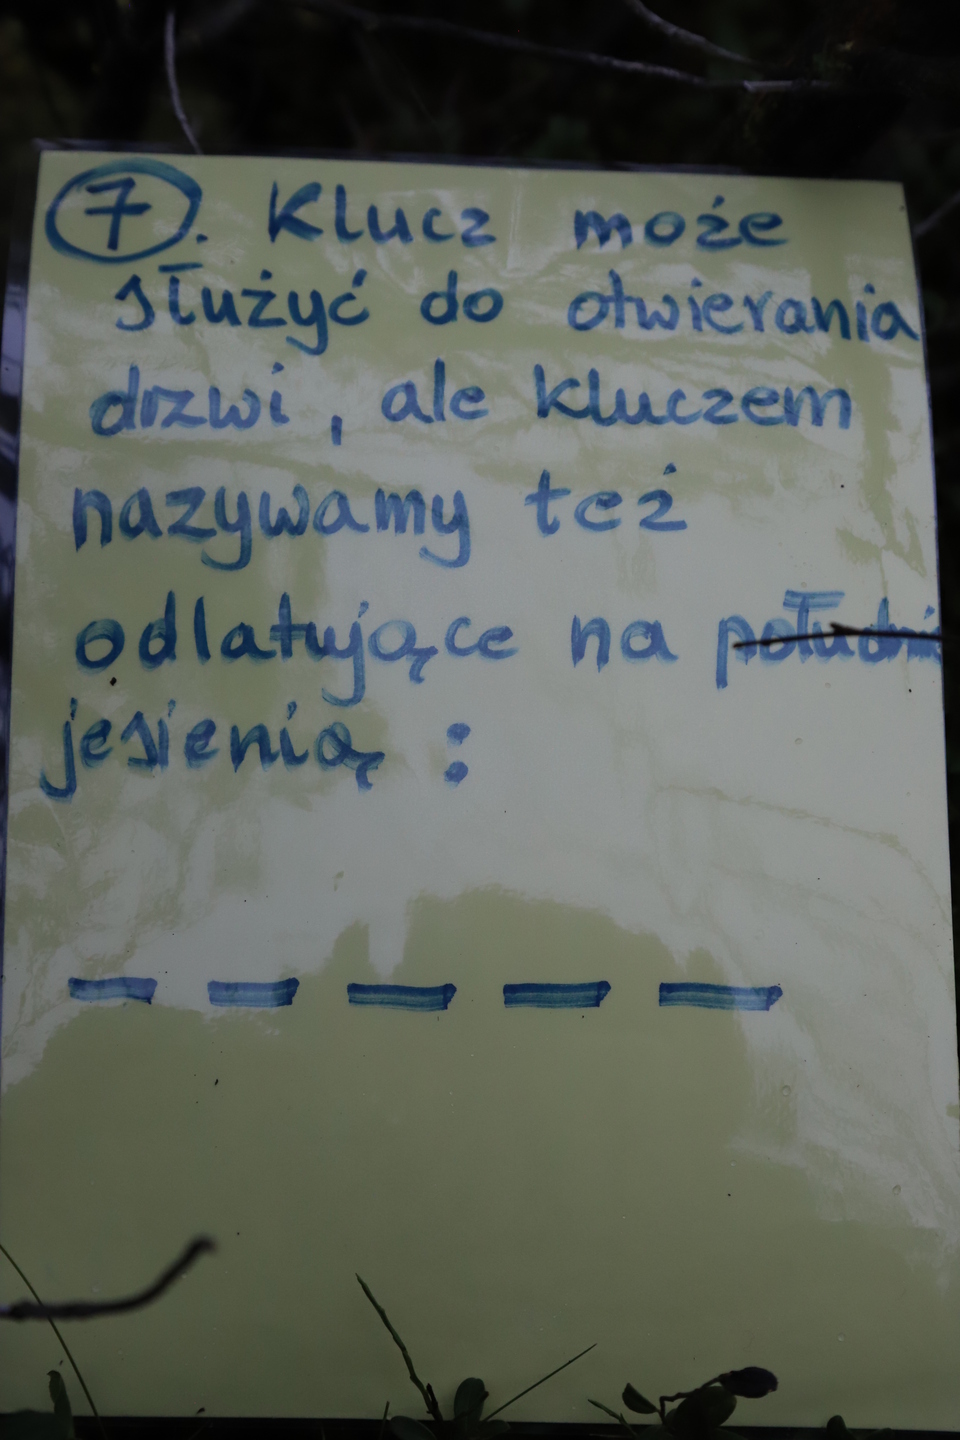 7. Klucz może
służyć do otwierania
drzwi, ale kluczem
nazywamy też
odlatujące na południe
jesienią:
_ _ _ _ _